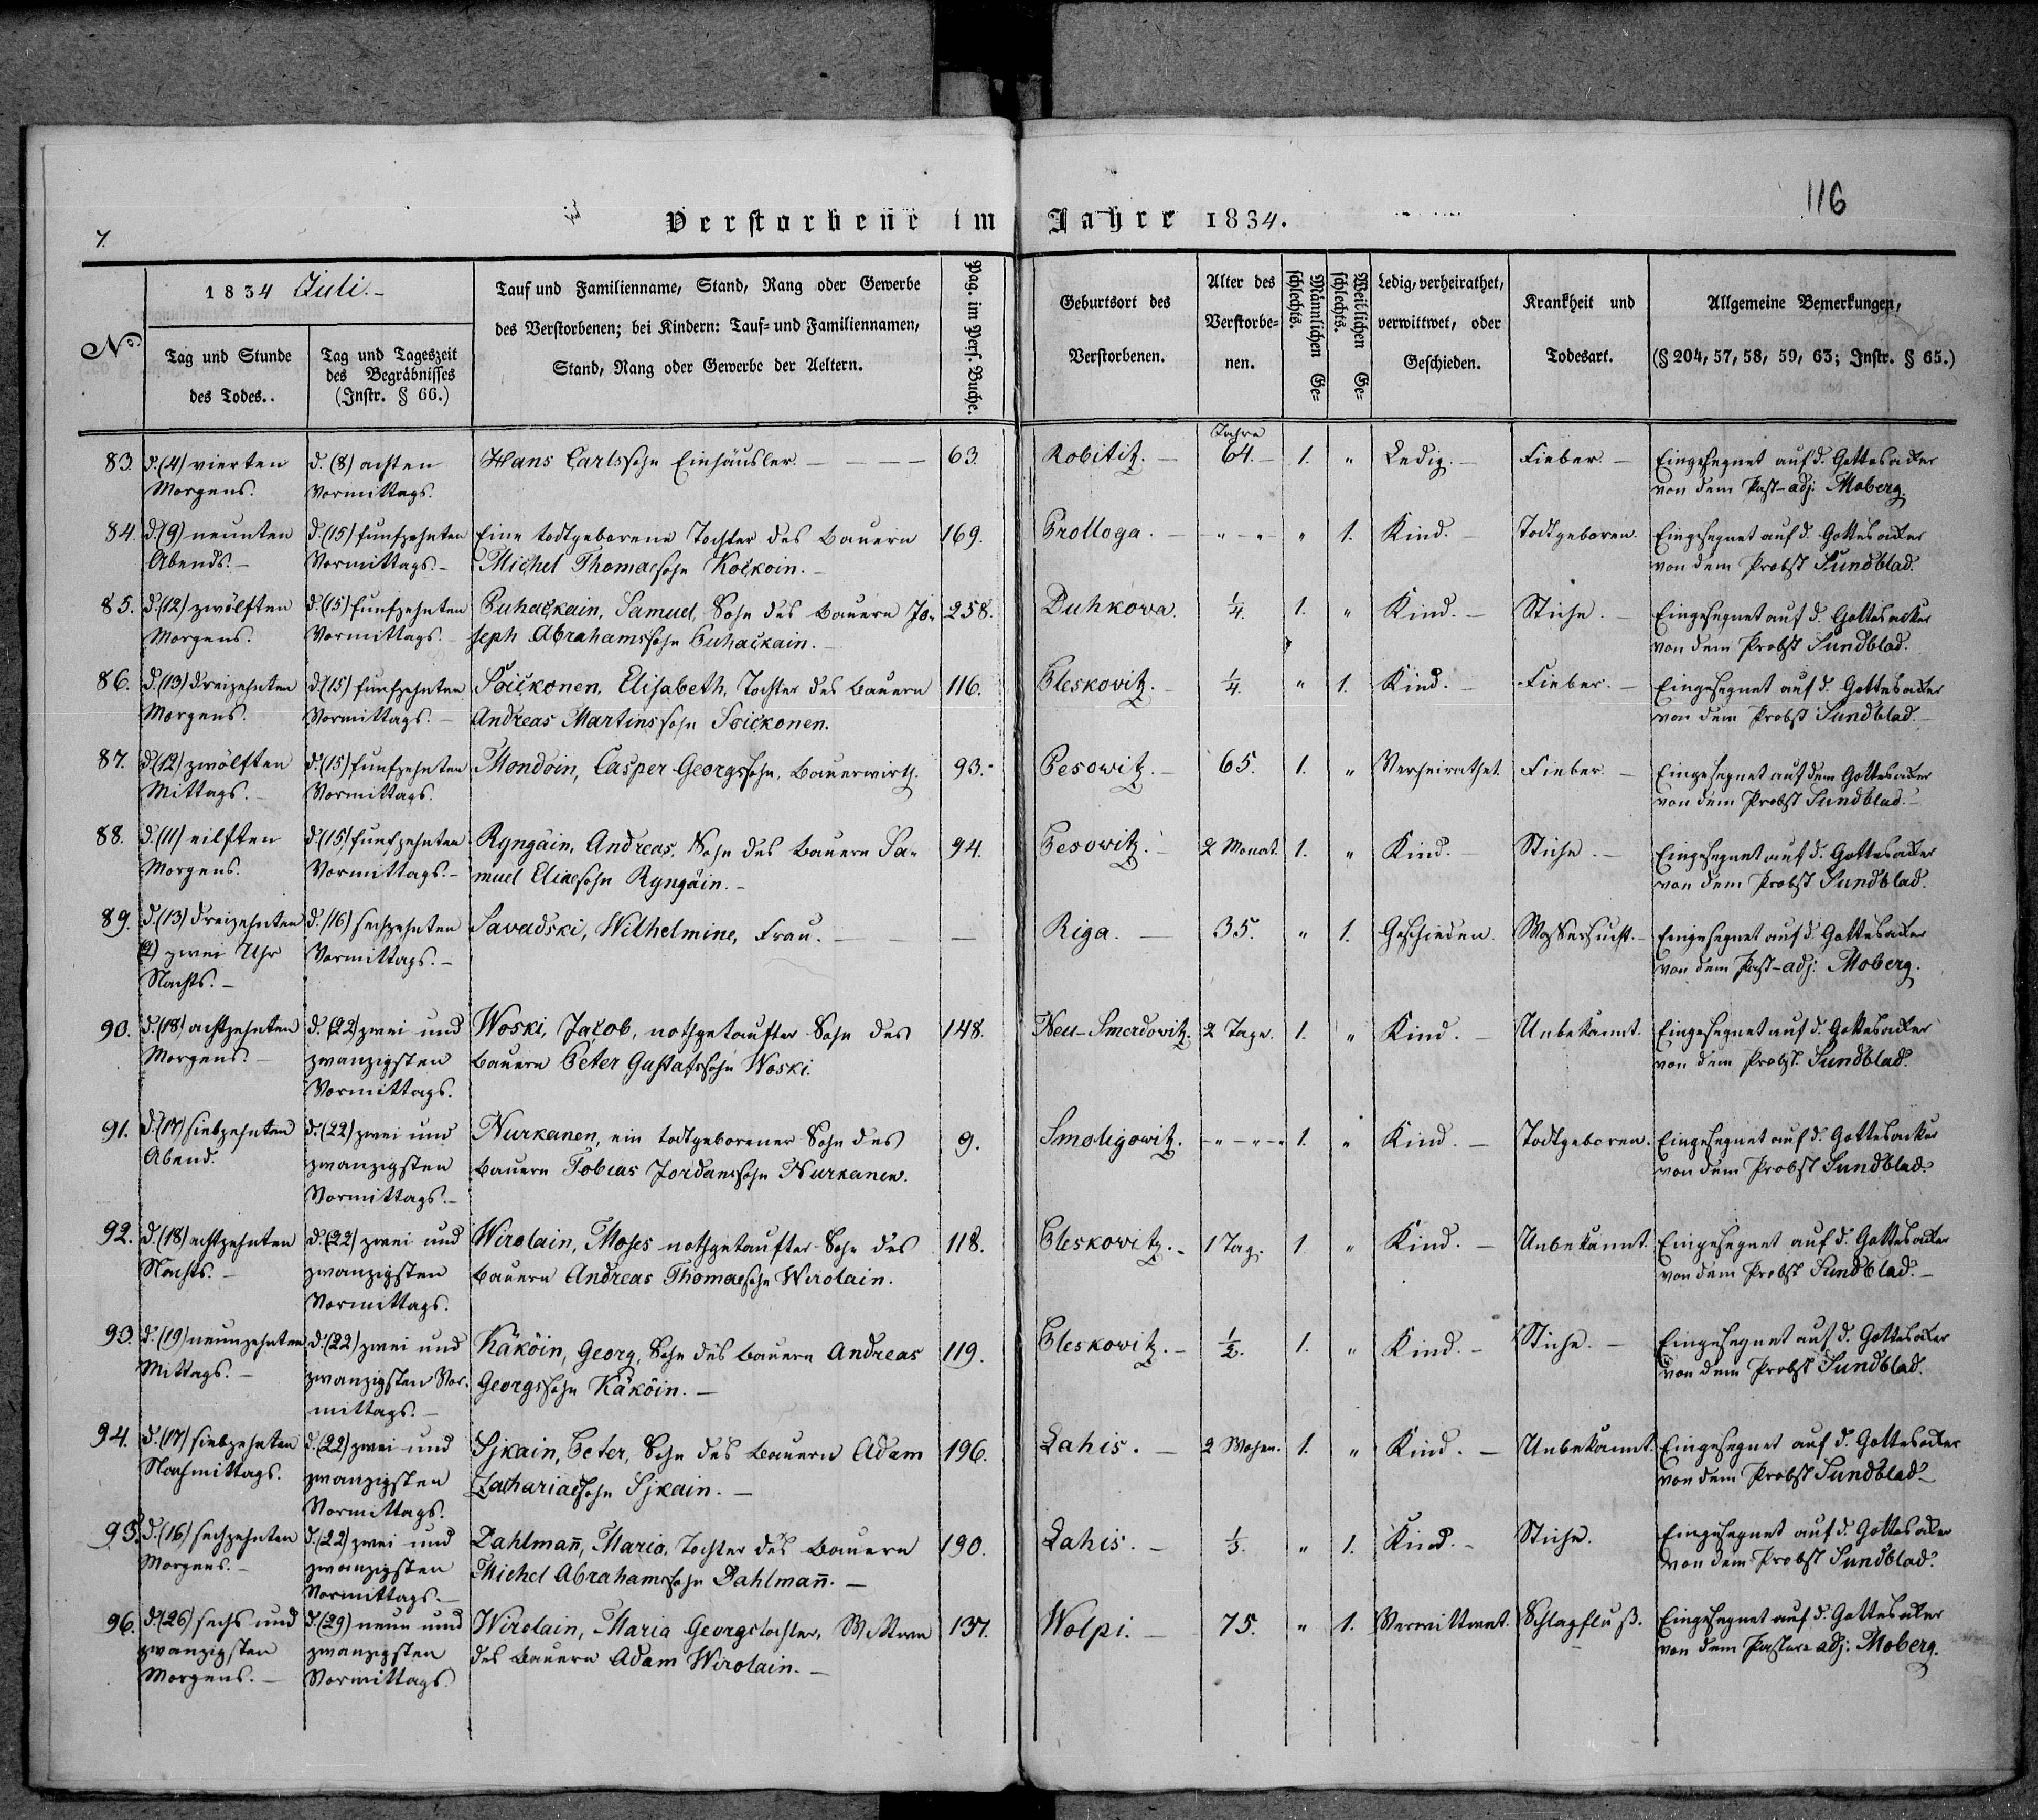 116
Verstorbene im Jahre 1834.
7.
No
1834 Juli.-
Tag und Stunde
des Todes..
Tag und Tageszeit
des Begräbnisses
(Instr. § 66.)
Tauf und Familienname, Stand, Rang oder Gewerbe
des Verstorbenen; bei Kindern: Tauf- und Familiennamen,
Stand, Rang oder Gewerbe der Aeltern.
Pag. im Pers. Buche.
Geburtsort des
Verstorbenen.
Alter des
Verstorbe-
nen.
Männlichen Ge-
schlechts.
Weiblichen Ge-
schlechts.
Ledig, verheirathet,
verwittwet, oder
Geschieden.
Krankheit und
Todesart.
Allgemeine Bemerkungen,
(§ 204, 57, 58, 59, 63; Instr. § 65.)
Jahre
83. d. (4) vierten d. (8) achten Hans Carlssohn Einhäusler. - - - - 63. Robititz. - 64. - 1. " Ledig. - Fieber. - Eingesegnet auf d. Gottesacker
Morgens. Vormittags. von dem Past-adj: Moberg.
84. d. (9) neunten d. (15) funfzehnten Eine todtgeborene Tochter des Bauern 169. Prolloga. - " - " " 1. Kind. - Todtgeboren. Eingesegnet auf d. Gottesacker
Abends. - Vormittags. - Michel Thomaesohn Kockoin. - von dem Probst Sundblad.
85. d. (12) zwölften d. (15) funfzehnten Puhackain, Samuel, Sohn des Bauern Jo- 258. Duhkova. 1/4. 1. " Kind. - Stiche. - Eingesegnet auf d. Gottesacker
Morgens. Vormittags. - seph Abrahamssohn Puhackain. - von dem Probst Sundblad.
86. d. (13) dreizehnten d. (15) funfzehnten Soickonen, Elisabeth, Tochter des Bauern 116. Pleskovitz. - 1/4. " 1. Kind. - Fieber. - Eingesegnet auf d. Gottesacker
Morgens. Vormittags. - Andreas Martinssohn Soickonen. von dem Probst Sundblad. -
87. d. (12) zwölften d. (15) funfzehnten Mondoin, Casper Georgssohn, Bauerwirth. 93. - Pesowitz. - 65. 1. " Verheirathet. Fieber. - Eingesegnet auf dem Gottesacker
Mittags. - Vormittags. von dem Probst Sundblad. -
88. d. (11) eilften d. (15) funfzehnten Ryngäin, Andreas, Sohn des Bauern Sa- 94. Pesowitz. - 2 Monat. 1. " Kind. - Stiche. - Eingesegnet auf d. Gottesacker
Morgens. Vormittags. - muel Eliaesohn Ryngäin. - von dem Probst Sundblad.
89. d. (13) dreizehnten d. (16) sechzehnten Savadski, Wilhelmine, Frau. - - Riga. - 35. " 1. Geschieden. Wassersucht. - Eingesegnet auf d. Gottesacker
(2) zwei Uhr Vormittags. - von dem Past-adj: Moberg.
Nachts. -
90. d. (18) achtzehnten d. (22) zwei und Woski, Jacob, nothgetaufter Sohn des 148. Neu-Smerdovitz. 2 Tage. 1. " Kind. - Unbekannt. Eingesegnet auf d. Gottesacker
Morgens. - zwanzigsten Bauern Peter Gustafssohn Woski. von dem Probst Sundblad.
Vormittags.
91. d. (17) siebzehnten d. (22) zwei und Nurkanen, ein todtgeborener Sohn des 9. Smoligowitz. - " - " - 1. " Kind. - Todtgeboren. Eingesegnet auf d. Gottesacker
Abend. zwanzigsten Bauern Tobias Jordanssohn Nurkanen. von dem Probst Sundblad.
Vormittags. -
92. d. (18) achtzehnten d. (22) zwei und Wirolain, Moses nothgetaufter Sohn des 118. Pleskovitz. - 1 Tag. 1. " Kind. - Unbekannt. Eingesegnet auf d. Gottesacker
Nachts. - zwanzigsten Bauern Andreas Thomaesohn Wirolain. von dem Probst Sundblad. -
Vormittags.
93. d. (19) neunzehnten d. (22) zwei und Käköin, Georg, Sohn des Bauern Andreas 119. Pleskovitz. - 1/2. 1. " Kind. - Stiche. - Eingesegnet auf d. Gottesacker
Mittags. - zwanzigsten Vor- Georgssohn Käköin. - von dem Probst Sundblad.
mittags. -
94. d. (17) siebzehnten d. (22) zwei und Sjkain, Peter, Sohn des Bauern Adam 196. Lahis. - 2 Wochen. 1. " Kind. - Unbekannt. Eingesegnet auf d. Gottesacker
Nachmittags. zwanzigsten Zachariaesohn Sjkain. - von dem Probst Sundblad -
Vormittags.
95. d. (16) sechzehnten d. (22) zwei und Dahlmañ, Maria, Tochter des Bauern 190. Lahis. - 1/3. " 1. Kind. - Stiche. Eingesegnet auf d. Gottesacker
Morgens. - zwanzigsten Michel Abrahamssohn Dahlmañ. - von dem Probst Sundblad.
Vormittags. -
96. d. (26) sechs und d. (29) neun und Wirolain, Maria Georgstochter, Wittwe 137. Wolpi. - 75. " 1. Verwittwet. Schlagfluß. Eingesegnet auf d. Gottesacker
zwanzigsten zwanzigsten des Bauern Adam Wirolain. - von dem Pastore adj: Moberg.
Morgens. - Vormittags.